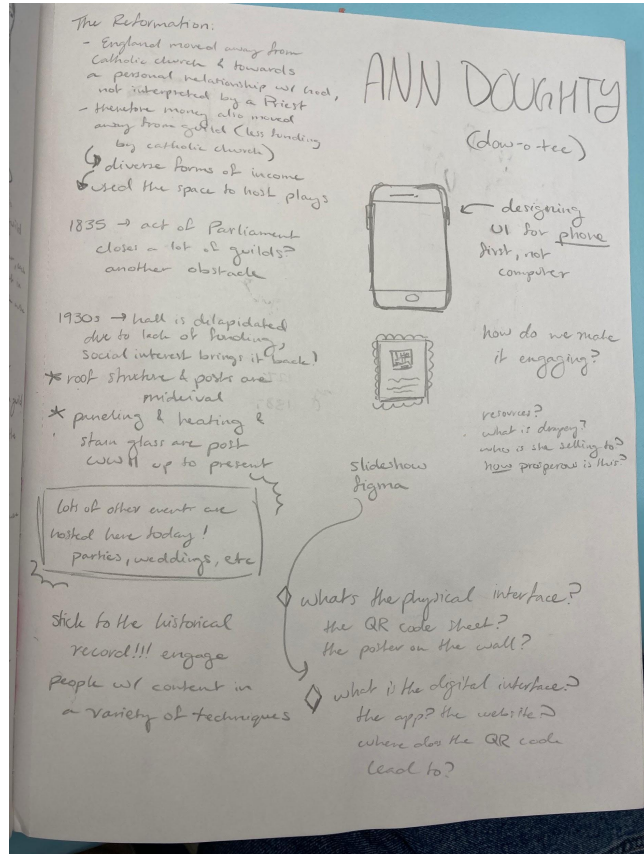 The Reformation:
- England moved away from
Catholic church & towards
a personal relationship w/ God,
not interpreted by a Priest
- therefore money also moved
away from guild (less funding
by catholic church)
diverse forms of income
used the space to host plays
1835 → act of Parliament
closes a lot of guilds?
another obstacle
1930s → hall is dilapidated
due to lack of funding,
social interest brings it back!
* roof structure & posts are
midieival
* paneling & heating &
stain glass are post
WWII up to present
lots of other events are
hosted here today!
parties, weddings, etc
stick to the historical
record!!! engage
people w/ content in
a variety of techniques
ANN DOUGHTY
(dow-o tee)
← designing
UI for phone
first, not
computer
how do we make
it engaging?
resources?
what is
who is she selling to?
how prosperous is this?
slideshow
figma
whats the physical interface?
the QR code sheet?
the poster on the wall?
what is the digital interface?
the app? the website?
where does the QR code
lead to?